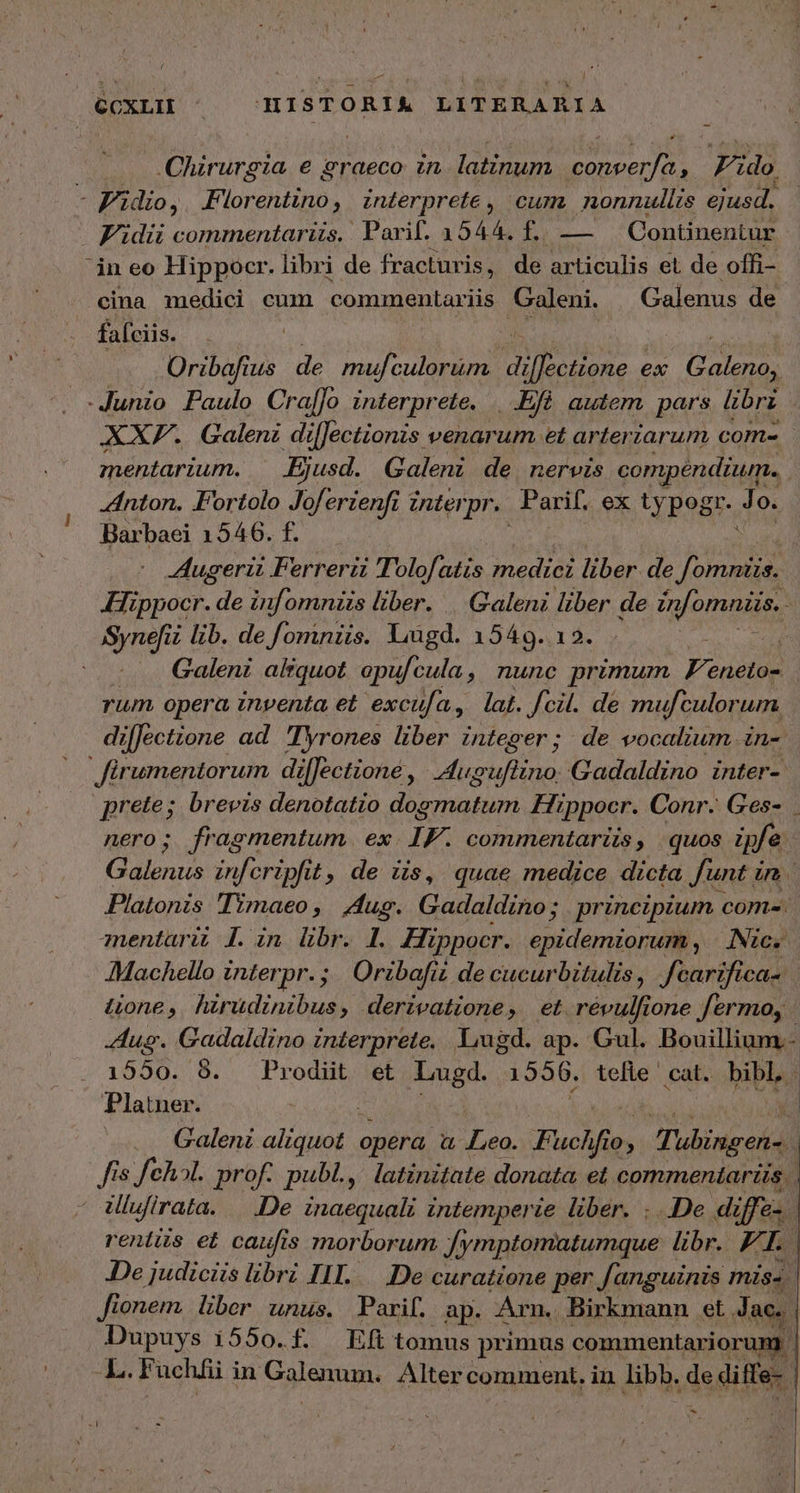 CCXLII HISTORIA LITERARIA
Chirurgia e graeco in latinum converſa, Vido
Vidio, Florentino, interprete, cum nonnullis ejusd.
Vidii commentariis. Pariſ. 1544. f. — Continentur
in eo Hippocr. libri de fracturis, de articulis et de offi-
cina medici cum commentariis Galeni. Galenus de
faſciis.
Oribaſius de muſculorum diſſectione ex Galeno,
Junio Paulo Craſſo interprete. Eſt autem pars libri
XXV. Galeni diſſectionis venarum et arteriarum com-
mentarium. Ejusd. Galeni de nervis compendium.
Anton. Fortolo Joſerienſi interpr. Pariſ. ex typogr. Jo.
Barbaei 1546. f.
Augerii Ferrerii Toloſatis medici liber de ſomniis.
Hippocr. de inſomniis liber. Galeni liber de inſomniis.
Syneſii lib. de ſomniis. Lugd. 1549. 12.
Galeni aliquot opuſcula, nunc primum Veneto-
rum opera inventa et excuſa, lat. ſcil. de muſculorum
diſſectione ad Tyrones liber integer; de vocalium in-
ſtrumentorum diſſectione, Auguſtino Gadaldino inter-
prete; brevis denotatio dogmatum Hippocr. Conr. Ges-
nero; fragmentum ex IV. commentariis, quos ipſe
Galenus inſcripſit, de iis, quae medice dicta ſunt in
Platonis Timaeo, Aug. Gadaldino; principium com-
mentarii I. in libr. I. Hippocr. epidemiorum, Nic.
Machello interpr.; Oribaſii de cucurbitulis, ſcarifica-
tione, hirudinibus, derivatione, et revulſione ſermo,
Aug. Gadaldino interprete. Lugd. ap. Gul. Bouillium
1550. 8. Prodiit et Lugd. 1556. teſte cat. bibl.
Platner.
Galeni aliquot opera a Leo. Fuchſio, Tubingen-
ſis ſchol. prof. publ., latinitate donata et commentariis
illuſtrata. De inaequali intemperie liber. De diffe-
rentiis et cauſis morborum ſymptomatumque libr. VI.
De judiciis libri III. De curatione per ſanguinis miſ-
ſionem liber unus. Pariſ. ap. Arn. Birkmann et Jac.
Dupuys 1550. f. Eſt tomus primus commentariorum
L. Fuchſii in Galenum. Alter comment. in libb. de diffe-